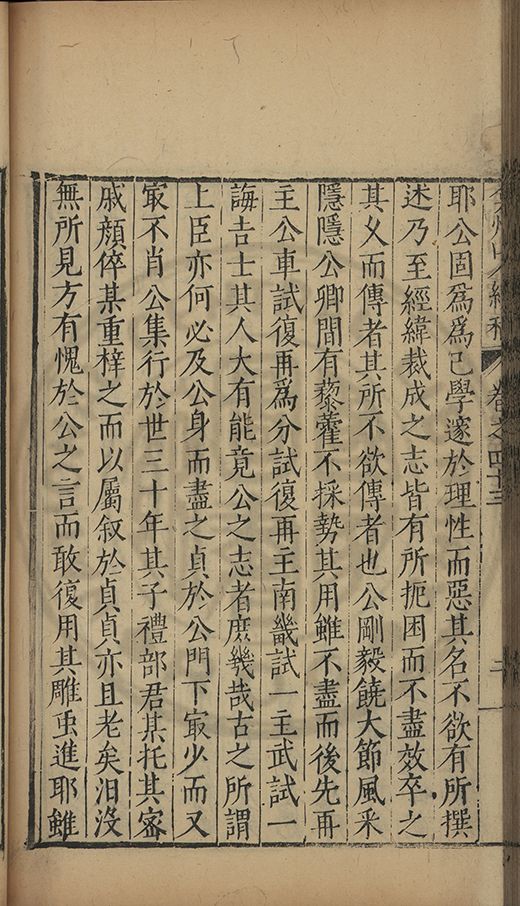 耶公固爲爲己學邃於理性而惡其名不欲有所撰
述乃至經緯裁成之志皆有所扼困而不盡效卒之
其文而傳者其所不欲傳者也公剛毅饒大節風采
隱隱公卿間有藜藿不採勢其用雖不盡而後先再
主公車試復再爲分試復再主南畿試一主武試一
誨吉士其人大有能竟公之志者庶幾哉古之所謂
上臣亦何必及公身而盡之貞於公門下㝡少而又
㝡不肖公集行於世三十年其子禮部君某托其宻
戚顔倅某重梓之而以屬叙於貞貞亦且老矣汩沒
無所見方有愧於公之言而敢復用其雕虫進耶雖
卷之四十三
二